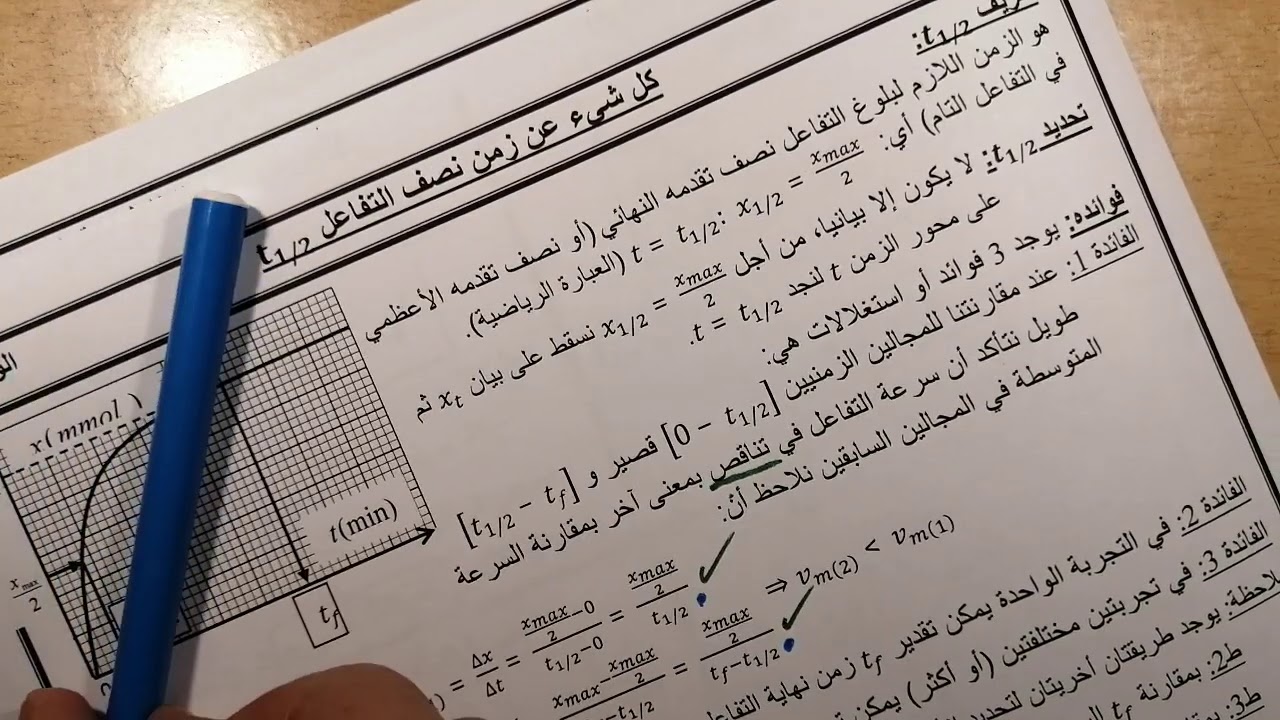 كل شيء عن زمن نصف التفاعل t1/2
تعريف t1/2:
هو الزمن اللازم لبلوغ التفاعل نصف تقدمه النهائي (أو نصف تقدمه الأعظمي
في التفاعل التام) أي: t = t1/2: x1/2 = xmax/2 (العبارة الرياضية).
تحديد t1/2: لا يكون إلا بيانيا، من أجل x1/2 = xmax/2 نسقط على بيان xt ثم
على محور الزمن t لنجد t = t1/2.
فوائده: يوجد 3 فوائد أو استغلالات هي:
الفائدة 1: عند مقارنتنا للمجالين الزمنيين [0 - t1/2] قصير و [t1/2 - tf]
طويل نتأكد أن سرعة التفاعل في تناقص بمعنى آخر بمقارنة السرعة
المتوسطة في المجالين السابقين نلاحظ أن:
= Δx/Δt = (xmax/2 - 0)/(t1/2 - 0) = (xmax/2)/t1/2
xmax - xmax/2 = (xmax/2)/(tf - t1/2) ⇒ vm(2) < vm(1)
الفائدة 2: في التجربة الواحدة يمكن تقدير tf زمن نهاية التفاعل
الفائدة 3: في تجربتين مختلفتين (أو أكثر) يمكن
ملاحظة: يوجد طريقتان أخريتان لتحديد
ط2: بمقارنة tf
ط3:
x(mmol)
xmax/2
t(min)
tf
0